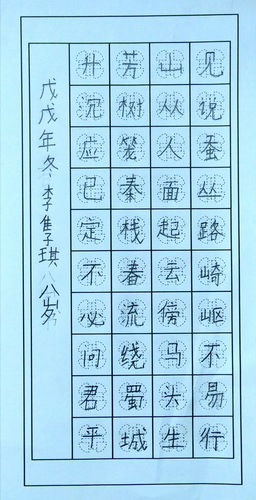 见说蚕丛路崎岖不易行
山从人面起云傍马头生
芳树笼秦栈春流绕蜀城
升沉应已定不必问君平
戊戌年冬李隽琪八岁